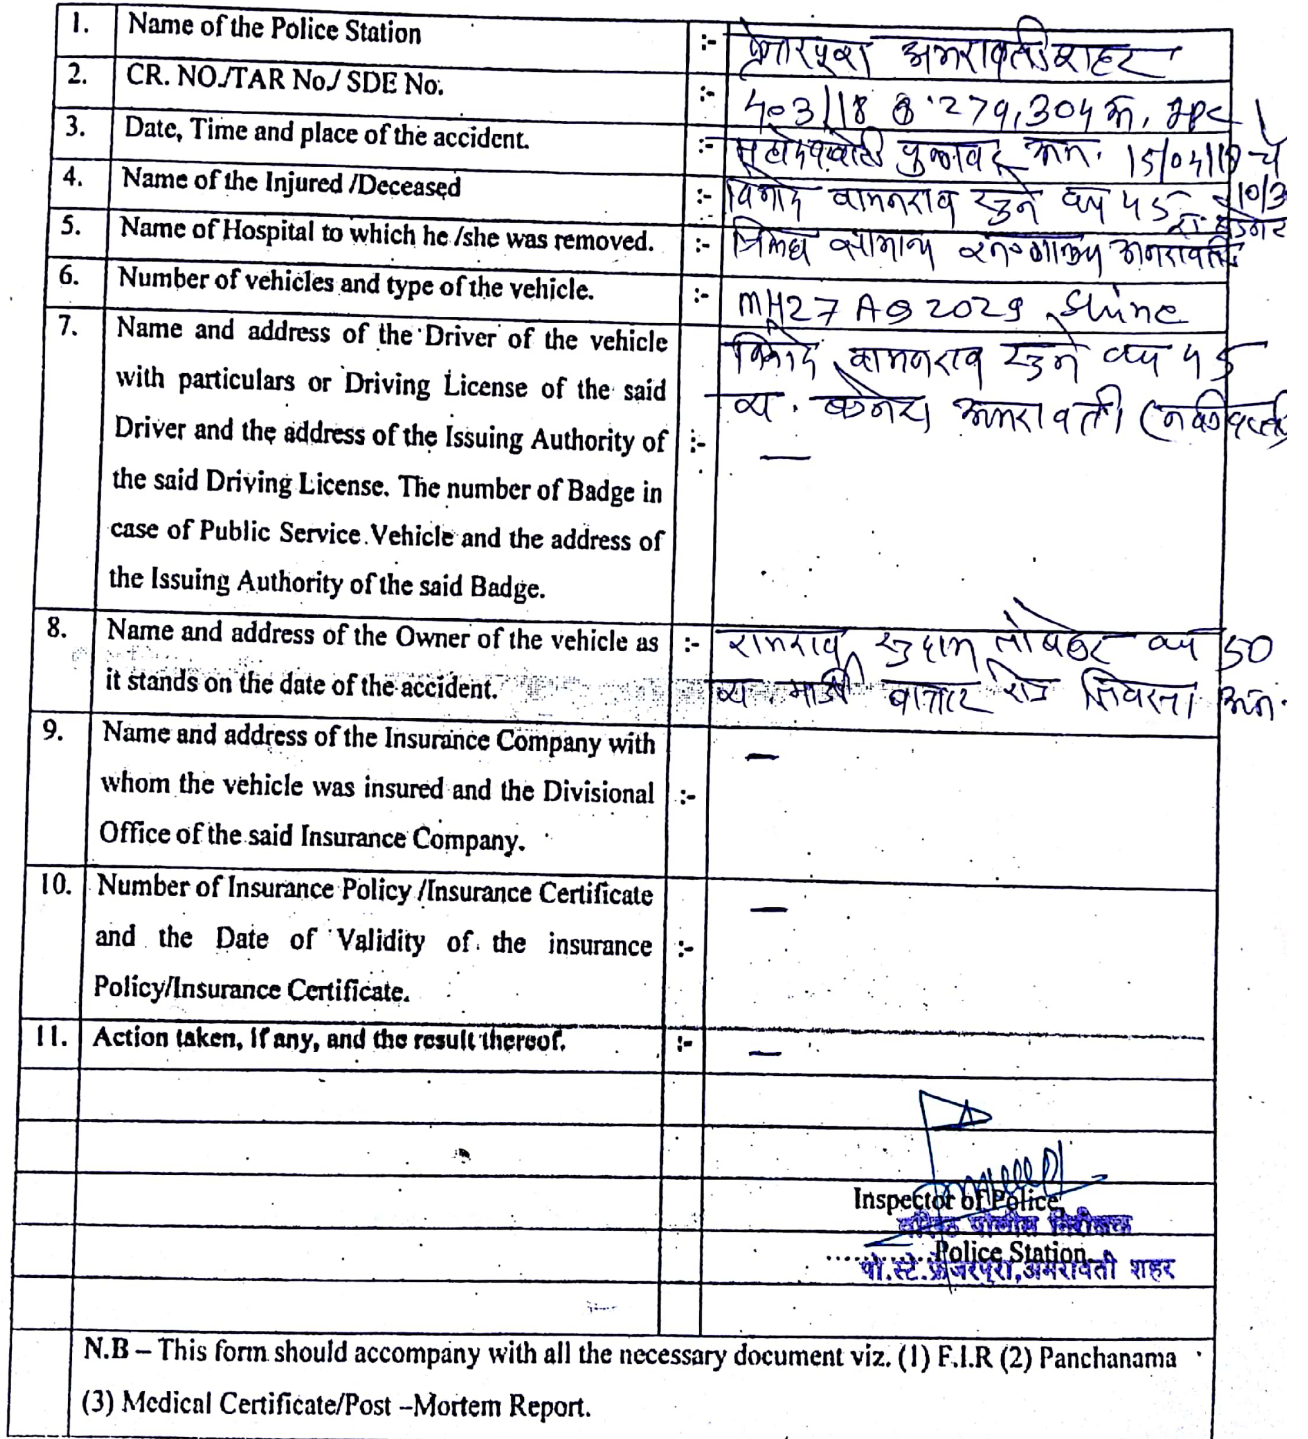 1. Name of the Police Station :- फ्रेजरपुरा अमरावती शहर
2. CR. NO./TAR No./ SDE No. :- 403/18 279, 304 अ, IPC
3. Date, Time and place of the accident. :- अम. 15/04/18 चे
4. Name of the Injured /Deceased :- विनोद वामनराव वय 45 10/3
5. Name of Hospital to which he /she was removed. :- सामान्य रुग्णालय अमरावती
6. Number of vehicles and type of the vehicle. :- MH27 AQ 2029 Shine
7. Name and address of the Driver of the vehicle :- विनोद वामनराव वय 45
with particulars or Driving License of the said
रा. अमरावती
Driver and the address of the Issuing Authority of —
the said Driving License. The number of Badge in
case of Public Service Vehicle and the address of
the Issuing Authority of the said Badge.
8. Name and address of the Owner of the vehicle as :- रामराव वय 50
it stands on the date of the accident. रा. बाजार रोड अम.
9. Name and address of the Insurance Company with —
whom the vehicle was insured and the Divisional :-
Office of the said Insurance Company.
10. Number of Insurance Policy /Insurance Certificate —
and the Date of Validity of the insurance :-
Policy/Insurance Certificate.
11. Action taken, if any, and the result thereof. :- —
Inspector of Police,
वरिष्ठ पोलीस निरीक्षक
............Police Station.
पो.स्टे.फ्रेजरपुरा,अमरावती शहर
N.B – This form should accompany with all the necessary document viz. (1) F.I.R (2) Panchanama
(3) Medical Certificate/Post –Mortem Report.